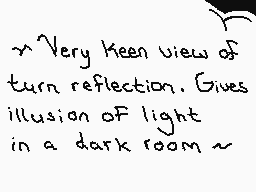 ~ Very keen view of
turn reflection. Gives
illusion of light
in a dark room ~